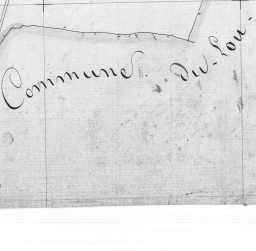 Commune du Lou-